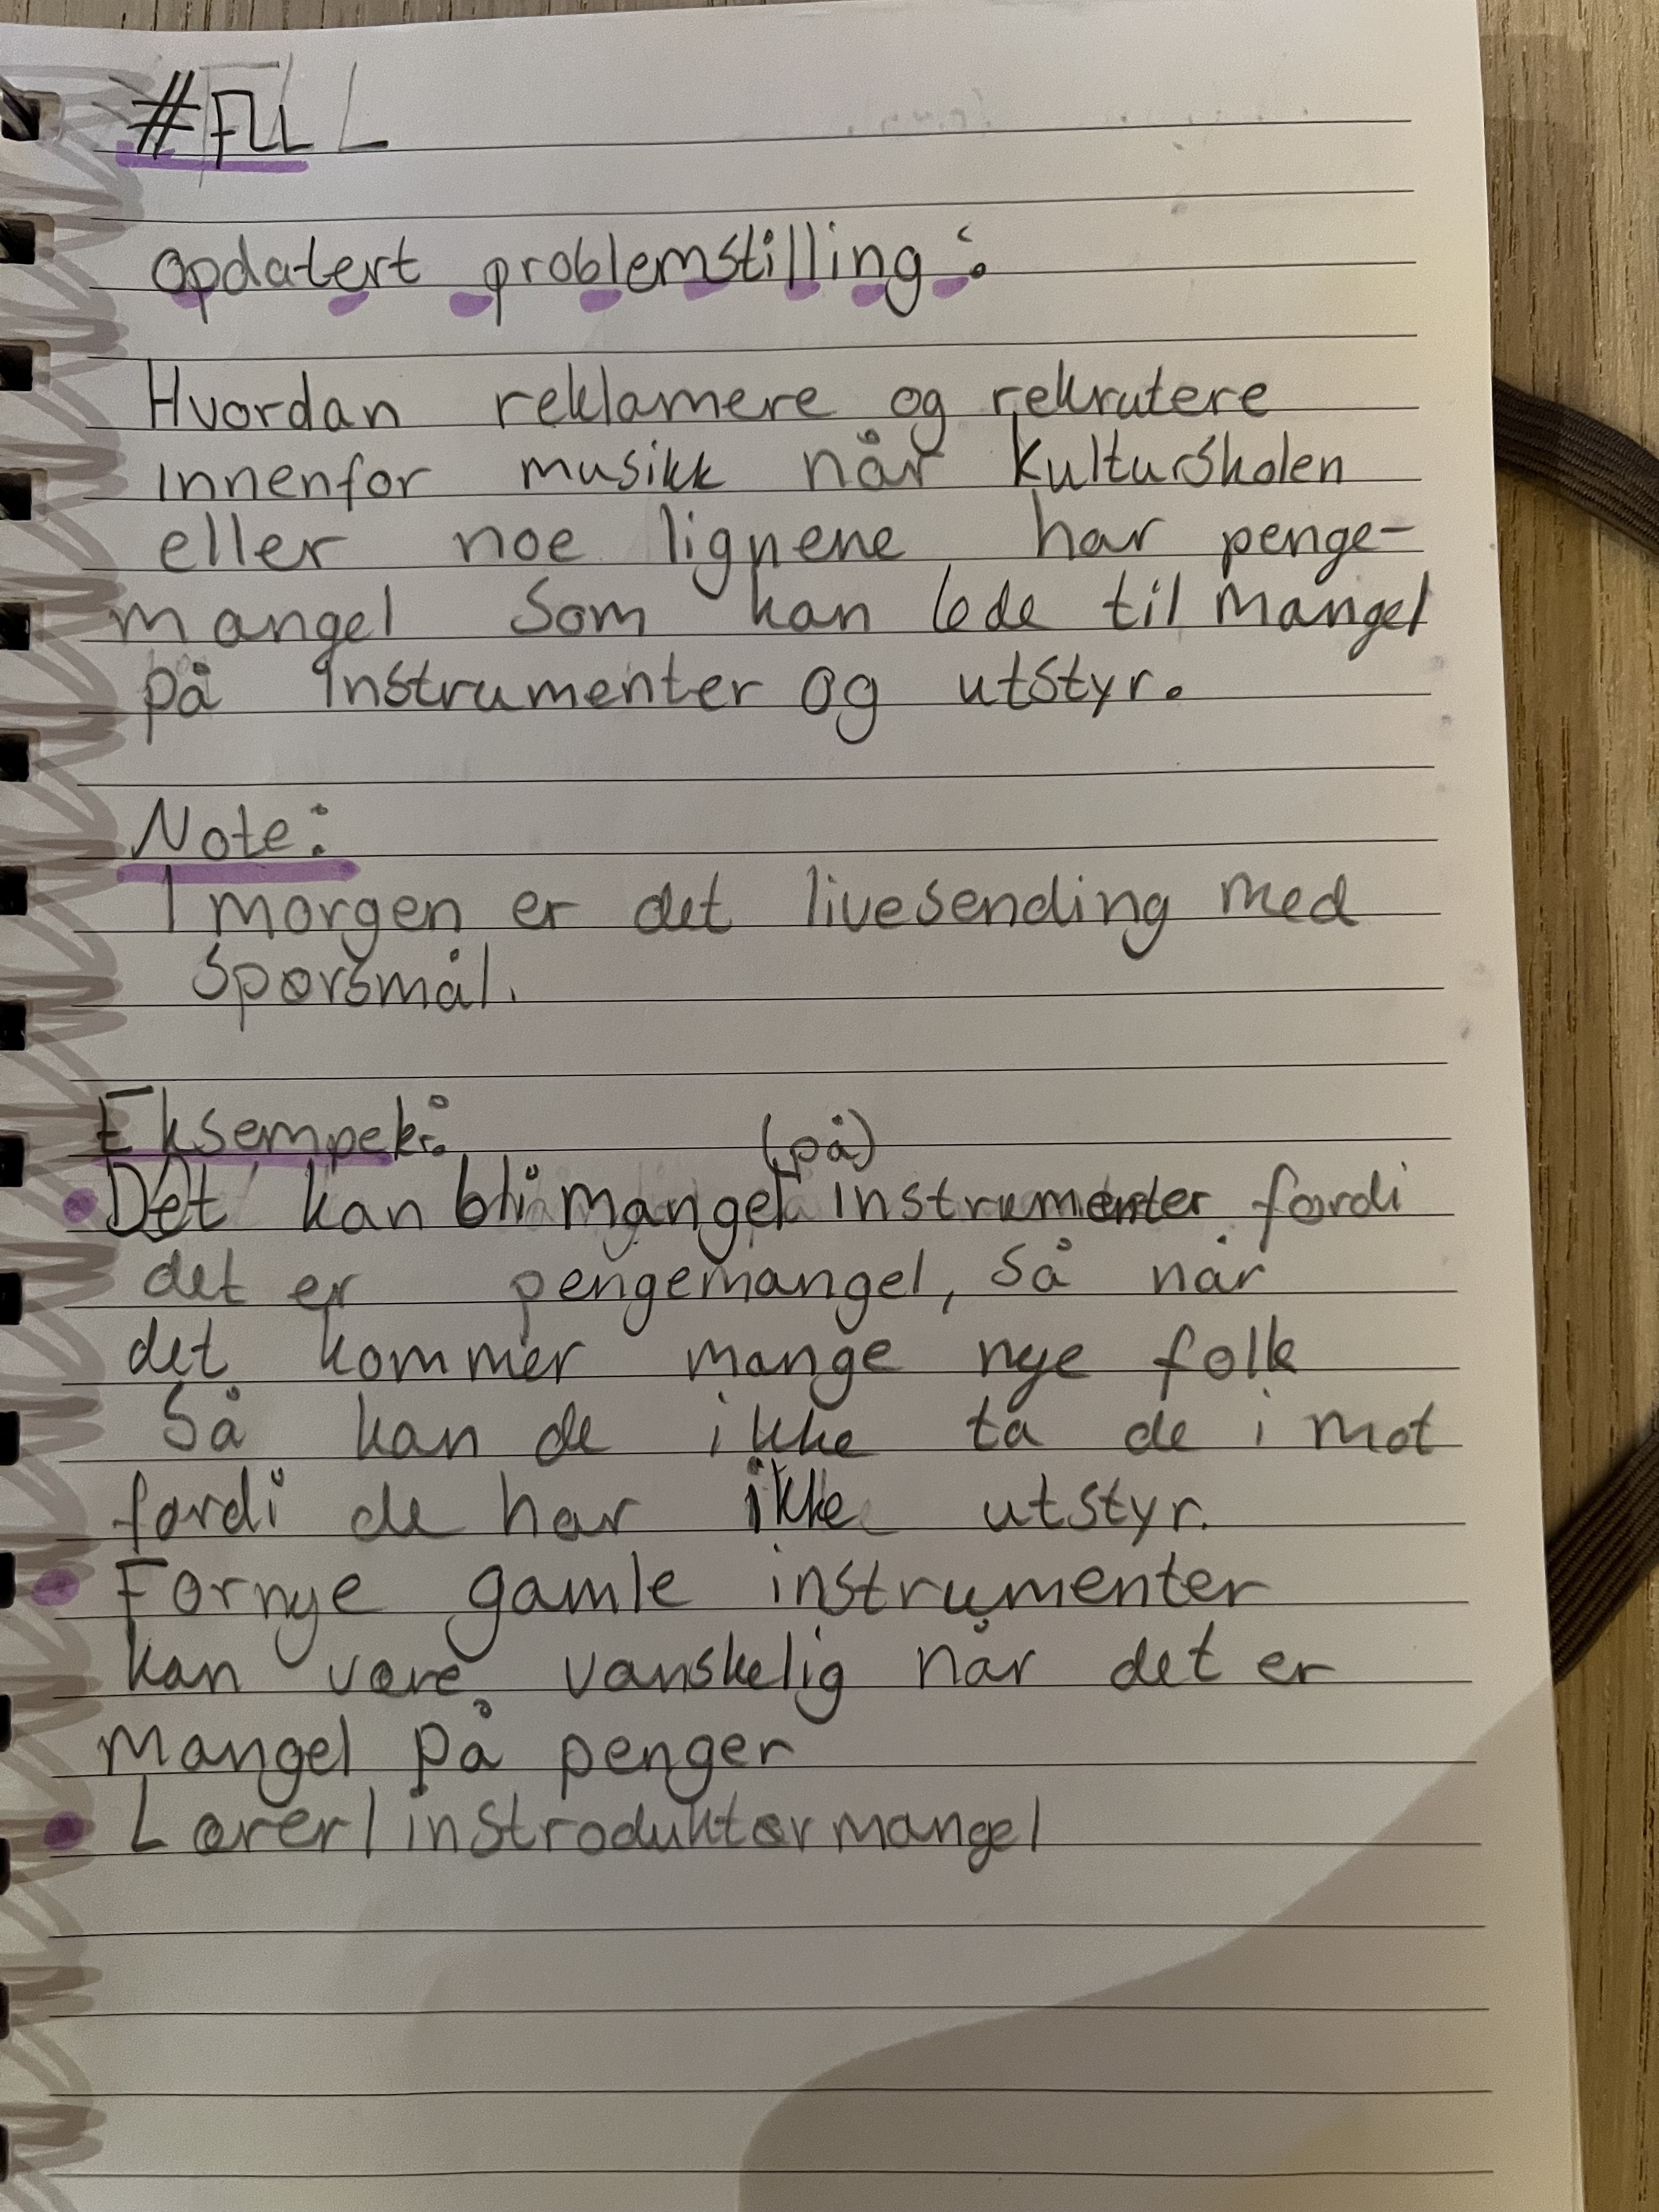 #FLL
Opdatert problemstilling:
Hvordan reklamere og rekrutere
innenfor musikk når kulturskolen
eller noe lignene har penge-
mangel som kan lede til mangel
på instrumenter og utstyr.
Note:
I morgen er det livesending med
spørsmål.
Eksempel:
(på)
• Det kan bli mangel instrumenter fordi
det er pengemangel, så når
det kommer mange nye folk
så kan de ikke ta de i mot
fordi de har ikke utstyr.
• Fornye gamle instrumenter
kan være vanskelig når det er
mangel på penger
• Lærer/instroduktør mangel